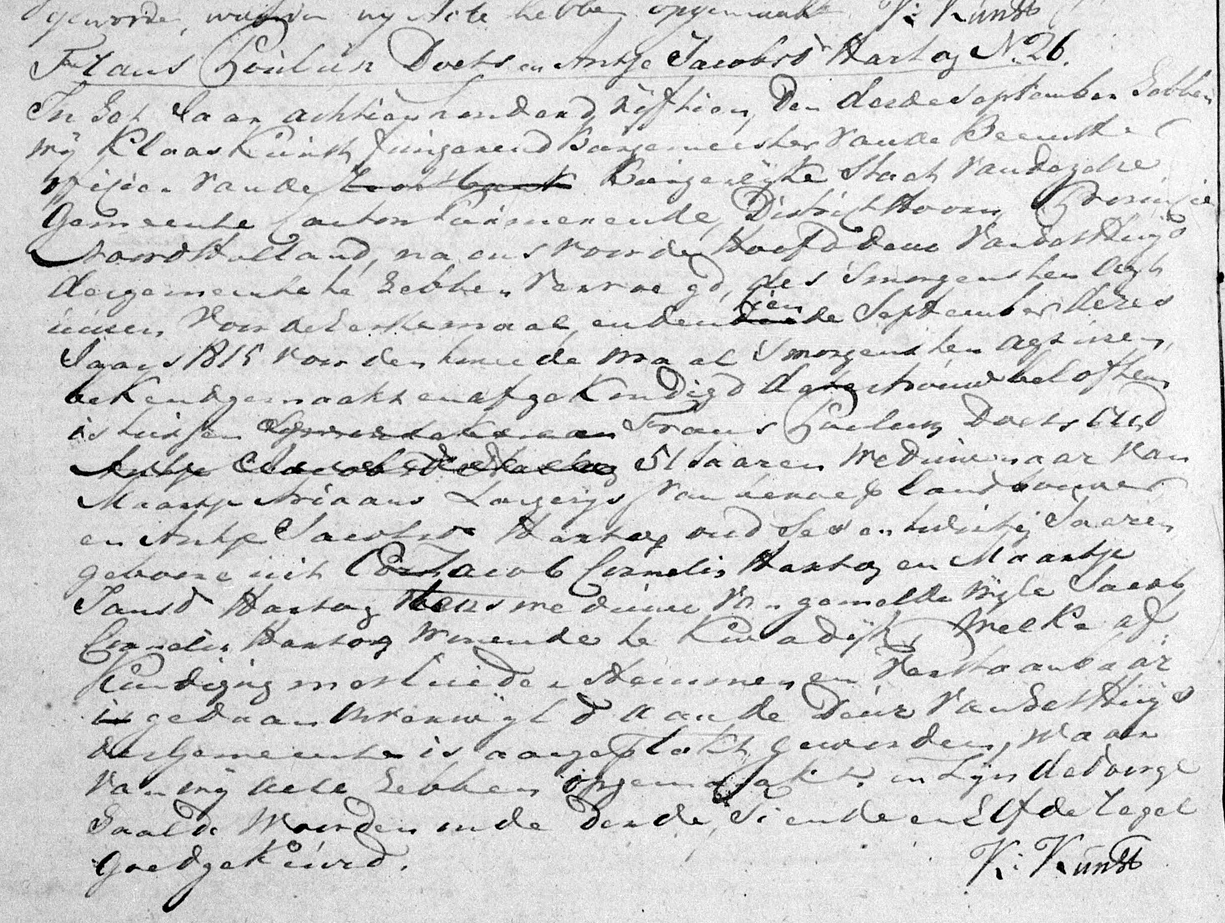 geworden, waarvan wy Acte hebben opgemaakt K: Kundt
Frans Poulus Doets en Antje Jacobsd Hartog No. 26.
In Het Jaar achtienhonderd vijftien, Den derde September hebben
wij Klaas Kundt fungerend Burgemeester van de Beemster
officier van de Burgerlijke Staat van dezelve
Gemeente Canton Purmerende, District Hoorn Provincie
Noord Holland, na ons voor de Hoofd deur van het Huijs
der gemeente te hebben vervoegd, des smorgens ten agt
uuren voor de eerste maal, en den tiende September dezes
Jaars 1815 voor den tweede maal smorgens ten agt uren,
bekendgemaakt en afgekondigd de trouwbeloften
is tussen Frans Poulus Doets oud
51 Jaaren Weduwenaar van
Maartje Ariaans Langerijs van beroep landbouwer
en Antje Jacobsd Hartog oud Ses en twintig Jaaren
geboore uit Jacob Cornelis Hartog en Maartje
Jansd Hartog weduwe van gemelde wyle Jacob
Cornelis Hartog Wonende te Kwadijk, Welke af
kundiging met luider Stemmen en Verstaanbaar
gedaan aan de Deur van het Huijs
der Gemeente is aangeplakt geworden, waar
van wij Acte hebben opgemaakt, en zijn de doorge
haalde Woorden in de Derde, Tiende en Elfde regel
Goedgekeurd. K: Kundt